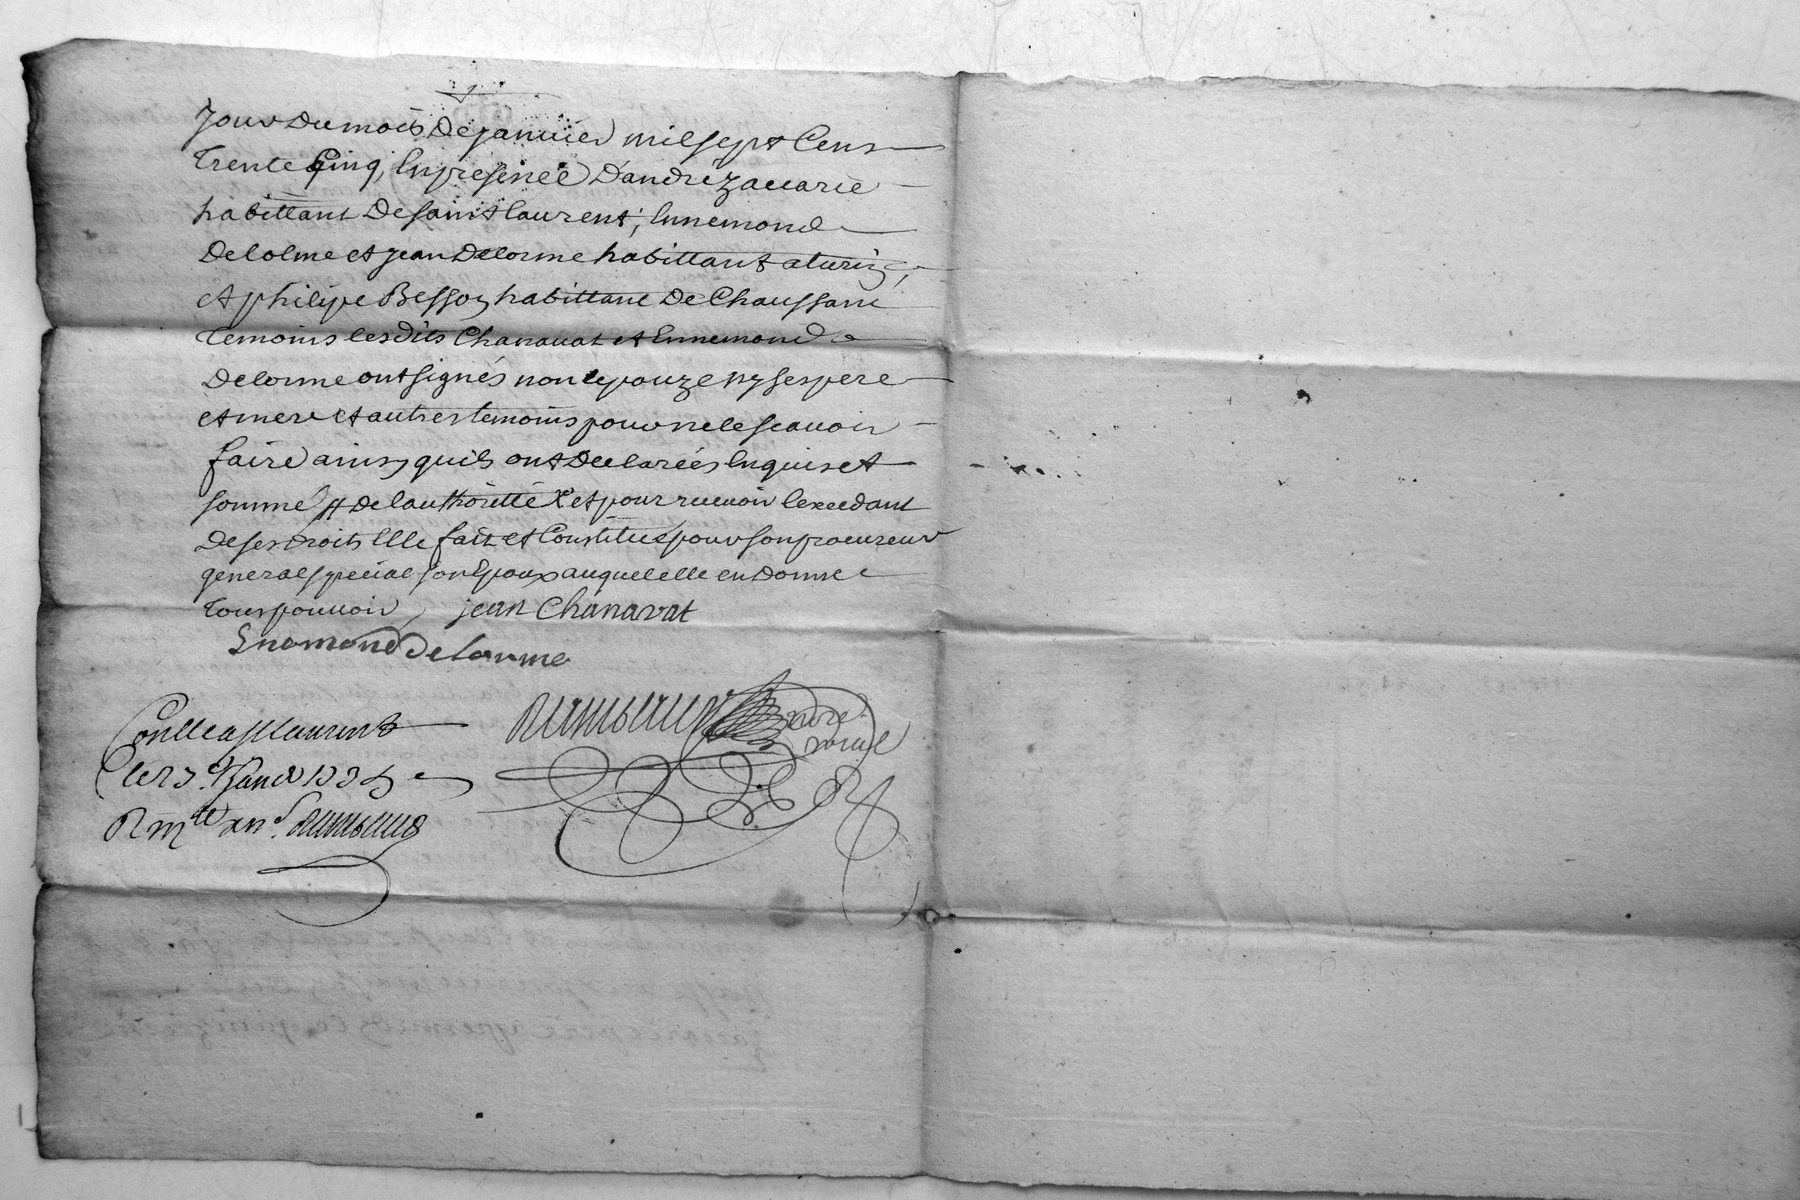 Jour du mois de janvier mil sept Cens
trente Cinq, En presence D'andré zacarie
habittant De saint laurent, Ennemond
Delolme et jean Delorme habittant a turin,
et philipe Besson habittant De Chaussani
temoins les dits Chanavat et Ennemond
Delorme ont signés non lepouze ny ses pere
et mere et autres temoins pour ne le scavoir
faire ainsy quils ont Declarées Enquis et
sommé # de lauthoritté X et pour recevoir lexcedant
De ses Droits Elle fait et Constitue pour son procureur
general special son Epoux auquel elle en Donne
tous pouvoir, jean Chanavat
Enomond Delorme
Conllé a st laurent
le 23e janer 1735
R